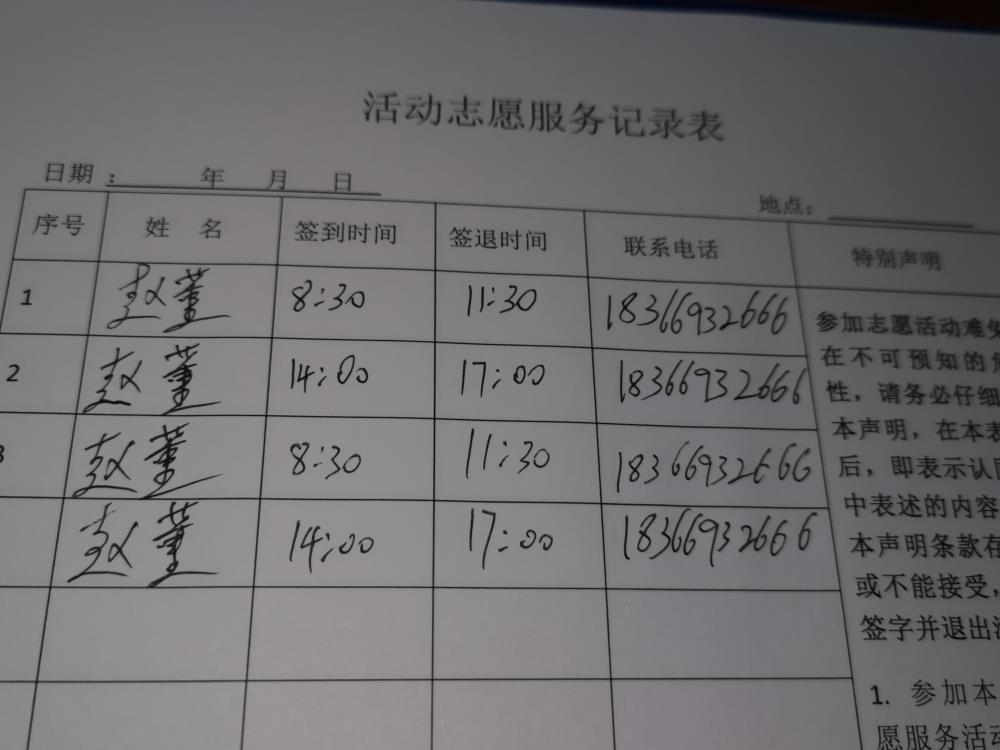 活动志愿服务记录表
日期： 年 月 日
地点：
序号 姓 名 签到时间 签退时间 联系电话 特别声明
1 赵董 8:30 11:30 18366932666
2 赵董 14:00 17:00 18366932666
3 赵董 8:30 11:30 18366932666
赵董 14:00 17:00 18366932666
参加志愿活动难免
在不可预知的危
性，请务必仔细
本声明，在本表
后，即表示认同
中表述的内容
本声明条款存
或不能接受，
签字并退出活
1. 参加本
愿服务活动